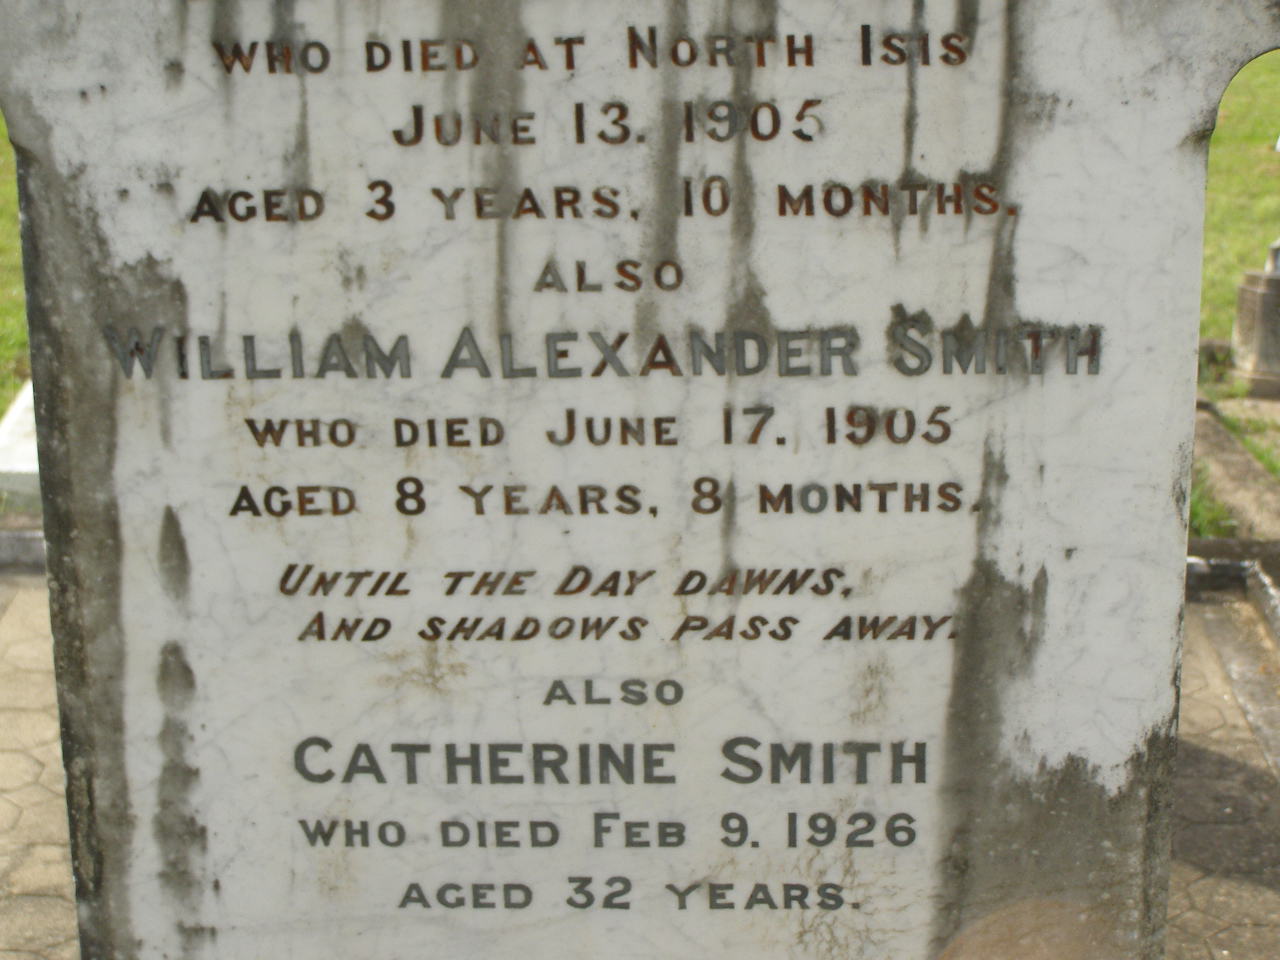 WHO DIED AT NORTH ISIS
JUNE 13. 1905
AGED 3 YEARS, 10 MONTHS.
ALSO
WILLIAM ALEXANDER SMITH
WHO DIED JUNE 17. 1905
AGED 8 YEARS, 8 MONTHS.
UNTIL THE DAY DAWNS,
AND SHADOWS PASS AWAY.
ALSO
CATHERINE SMITH
WHO DIED FEB 9. 1926
AGED 32 YEARS.